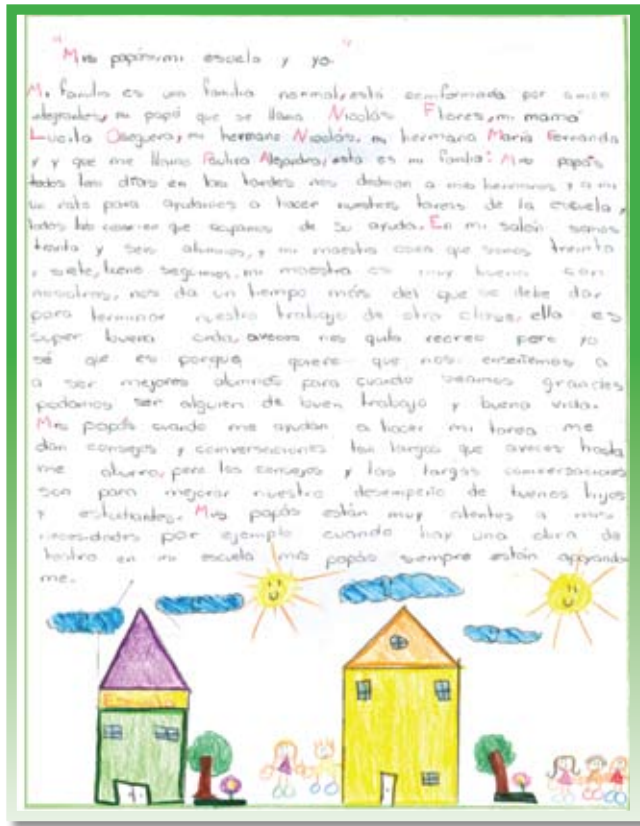 "Mis papás, mi escuela y yo."
Mi familia es una familia normal, está comformada por cinco
integrantes, mi papá que se llama Nicolás Flores, mi mamá
Lucila Oseguera, mi hermano Nicolás, mi hermana María Fernanda
y y que me llamo Paulina Alejandra, esta es mi familia: Mis papás
todos los días en las tardes nos dedican a mis hermanos y a mi
un rato para ayudarnos a hacer nuestras tareas de la escuela y
todas las que ocupamos de su ayuda. En mi salón somos
treinta y seis alumnos, y mi maestra que somos treinta
y siete, mi maestra es muy buena con
nosotros, nos da un tiempo más del que se debe dar
para terminar nuestro trabajo de otra clase, ella es
super buena onda, aveces nos quita recreo pero yo
sé que es porque quiere que nos enseñemos a
a ser mejores alumnos para cuando seamos grandes
podamos ser alguien de buen trabajo y buena vida.
Mis papás cuando me ayudan a hacer mi tarea me
dan consejos y comversaciones tan largas que aveces hasta
me aburro, pero los consejos y las largas comversaciones
son para mejorar nuestro desempeño de buenos hijos
y estudiantes. Mis papás están muy atentos a mis
necesidades por ejemplo cuando hay una obra de
teatro en mi escuela mis papás siempre están apoyando
me.